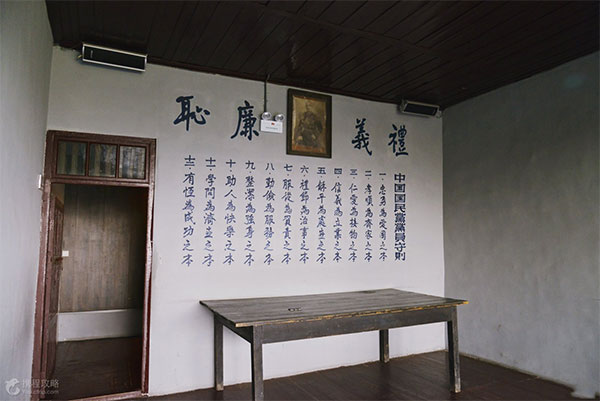 禮義廉恥
中国国民黨黨員守則
一、忠勇為愛国之本
二、孝順為齊家之本
三、仁愛為接物之本
四、信義為立業之本
五、龢平為處世之本
六、禮節為治事之本
七、服從為負責之本
八、勤儉為服務之本
九、整潔為強身之本
十、助人為快樂之本
十一、學問為濟世之本
十二、有恆為成功之本
携程攻略